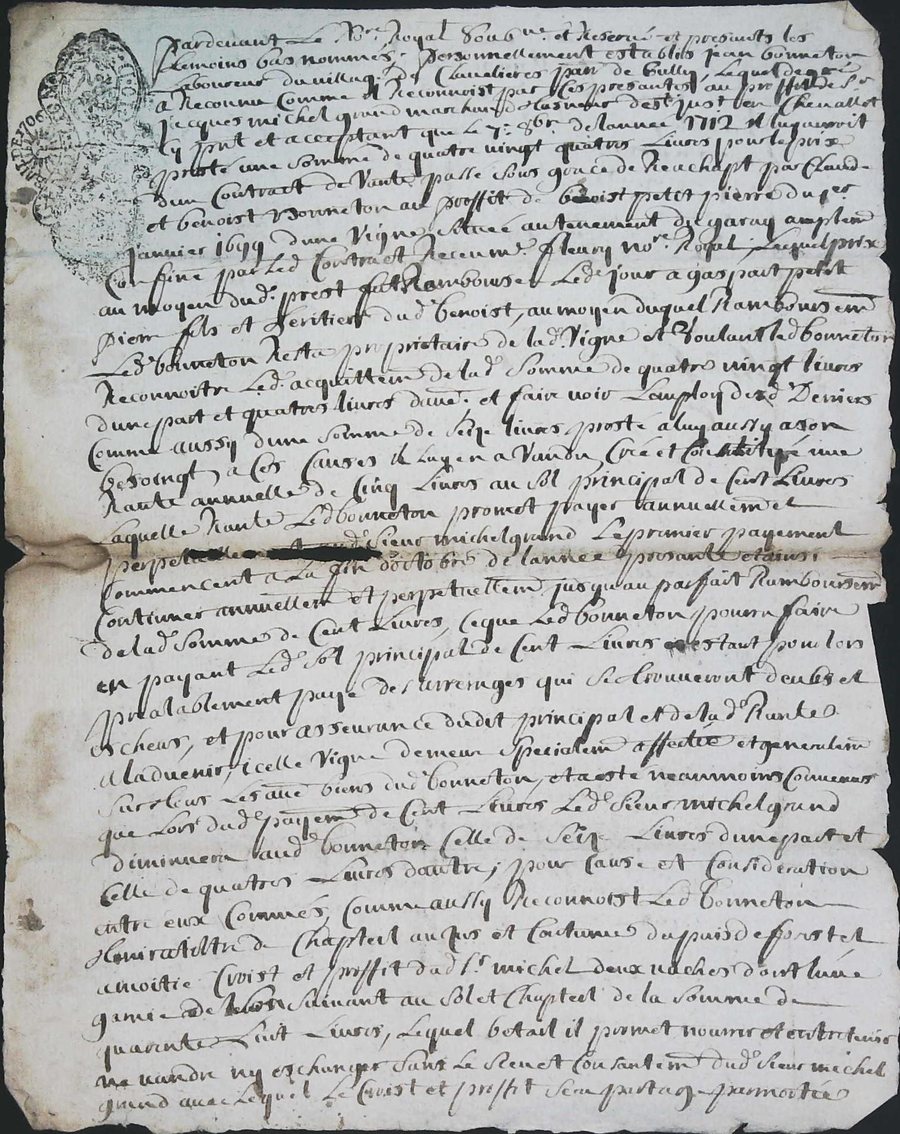 Pardevant Le no.re Royal Soub.né et Reservé et presants les
temoins bas nommes, Personnellement estably jean bonneton
Laboureur du villag.e de Clavelieres par. de bully, Lequel de gré
a Reconnu Comme il Reconnoist par Ces presantes au proffit de S.r
jacques michel grand marchand de st just en Chevallet
Cy pnt et acceptant que le 7.e 8bre de lannee 1712 il luy auroit
presté une somme de quatre vingt quatres Livres pour le prix
dun Contract de Vante passé Sous grace de Reachapt par Claud.e
et benoist Bonneton au proffit de benoist petit pierre du p.er
janvier 1699 dune Vigne située au tenement du garay amplem
Confiné par Led Contract Receu m.e fleury no.re Royal, Lequel prix
au moyen dud. prest fut Rambourse Led. jour a gaspart petit
pierre fils et heritier dud benoist, au moyen duquel Rambousem
Led. bonneton Resta proprietaire de lad Vigne et Voulant led bonneton
Reconnoitre Led. acquittem de lad. Somme de quatre vingt livres
dune part et quatres livres dau.e et faire voir Lemploy desd Deniers
Comme aussy dune Somme de Seize livres, presté a luy aussy a son
besoingt, a Ces Causes il luy en a Vandu Créé et Constitué une
Rante annuelle de Cinq Livres au Sol principal de Cent Livres
Laquelle Rante Led bonneton promet payer annuellem et
perpetuellem aud. Sieur michel grand Le premier payement
Commencent a La fin doctobre de lannee presante et ainsi
Continuer annuellem et perpetuellem jusqu au parfait Ramboursem
de lad. Somme de Cent Livres, Ceque Led bonneton pourra faire
en payant Led. Sol principal de Cent Livres estant pour lors
prealablement payé des arrerages qui Se trouveront deubs et
escheus, et pour asseurance dudit principal et de lad. Rante
a Ladvenir, icelle Vigne demeure Specialem affectée et generalem
Sur tous Les au.e biens dud. bonneton, et a esté neanmoins Convenus
que Lors dud. payem de Cent Livres Led. Sieur michel grand
diminuera aud. bonneton Celle de Seize Livres dune part et
Celle de quatres Livres dautre, pour Cause et Consideration
entre eux Commes, Comme aussy Reconnoist Led bonneton
tenir a tiltre de Chapteil au us et Coutume du puis de forest et
a moitié Croist et proffit dud S.r michel deux vaches dont lune
garnie de Suivant au Sol et Chapteil de la Somme de
quarente huit Livres, Lequel betail il promet nourrir et entretenir
ne vandre ny eschanger Sans Le Sceu et Consantem dud. Sieur michel
grand avec Lequel Le Croist et proffit Sera partagé par moitié